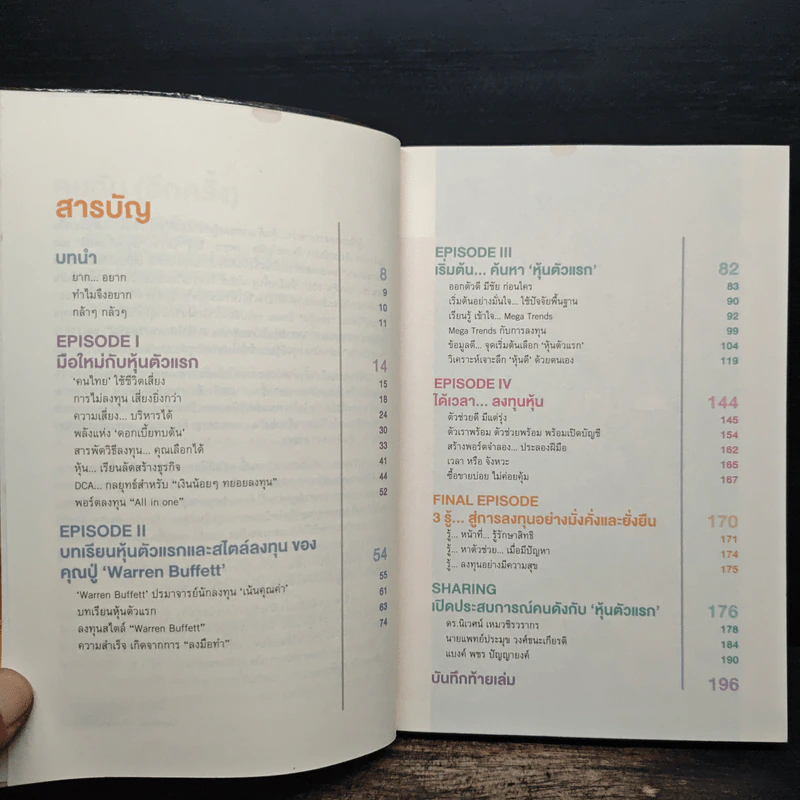 สารบัญ
บทนำ 8
ยาก... อยาก 9
ทำไมจึงอยาก 10
กล้าๆ กลัวๆ 11
EPISODE I
มือใหม่กับหุ้นตัวแรก 14
‘คนไทย’ ใช้ชีวิตเสี่ยง 15
การไม่ลงทุน เสี่ยงยิ่งกว่า 18
ความเสี่ยง... บริหารได้ 24
พลังแห่ง ‘ดอกเบี้ยทบต้น’ 30
สารพัดวิธีลงทุน... คุณเลือกได้ 33
หุ้น... เรียนลัดสร้างธุรกิจ 41
DCA... กลยุทธ์สำหรับ “เงินน้อยๆ ทยอยลงทุน” 44
พอร์ตลงทุน “All in one” 52
EPISODE II
บทเรียนหุ้นตัวแรกและสไตล์ลงทุน ของ 54
คุณปู่ ‘Warren Buffett’
‘Warren Buffett’ ปรมาจารย์นักลงทุน ‘เน้นคุณค่า’ 55
บทเรียนหุ้นตัวแรก 61
ลงทุนสไตล์ “Warren Buffett” 63
ความสำเร็จ เกิดจากการ “ลงมือทำ” 74
EPISODE III
เริ่มต้น... ค้นหา ‘หุ้นตัวแรก’ 82
ออกตัวดี มีชัย ก่อนใคร 83
เริ่มต้นอย่างมั่นใจ... ใช้ปัจจัยพื้นฐาน 90
เรียนรู้ เข้าใจ... Mega Trends 92
Mega Trends กับการลงทุน 99
ข้อมูลดี... จุดเริ่มต้นเลือก ‘หุ้นตัวแรก’ 104
วิเคราะห์เจาะลึก ‘หุ้นดี’ ด้วยตนเอง 119
EPISODE IV
ได้เวลา... ลงทุนหุ้น 144
ตัวช่วยดี มีแต่รุ่ง 145
ตัวเราพร้อม ตัวช่วยพร้อม พร้อมเปิดบัญชี 154
สร้างพอร์ตจำลอง... ประลองฝีมือ 162
เวลา หรือ จังหวะ 165
ซื้อขายบ่อย ไม่ค่อยคุ้ม 167
FINAL EPISODE
3 รู้... สู่การลงทุนอย่างมั่งคั่งและยั่งยืน 170
รู้... หน้าที่... รู้รักษาสิทธิ 171
รู้... หาตัวช่วย... เมื่อมีปัญหา 174
รู้... ลงทุนอย่างมีความสุข 175
SHARING
เปิดประสบการณ์คนดังกับ ‘หุ้นตัวแรก’ 176
ดร.นิเวศน์ เหมวชิรวรากร 178
นายแพทย์ประมุข วงศ์ธนะเกียรติ 184
แบงค์ พชร ปัญญายงค์ 190
บันทึกท้ายเล่ม 196